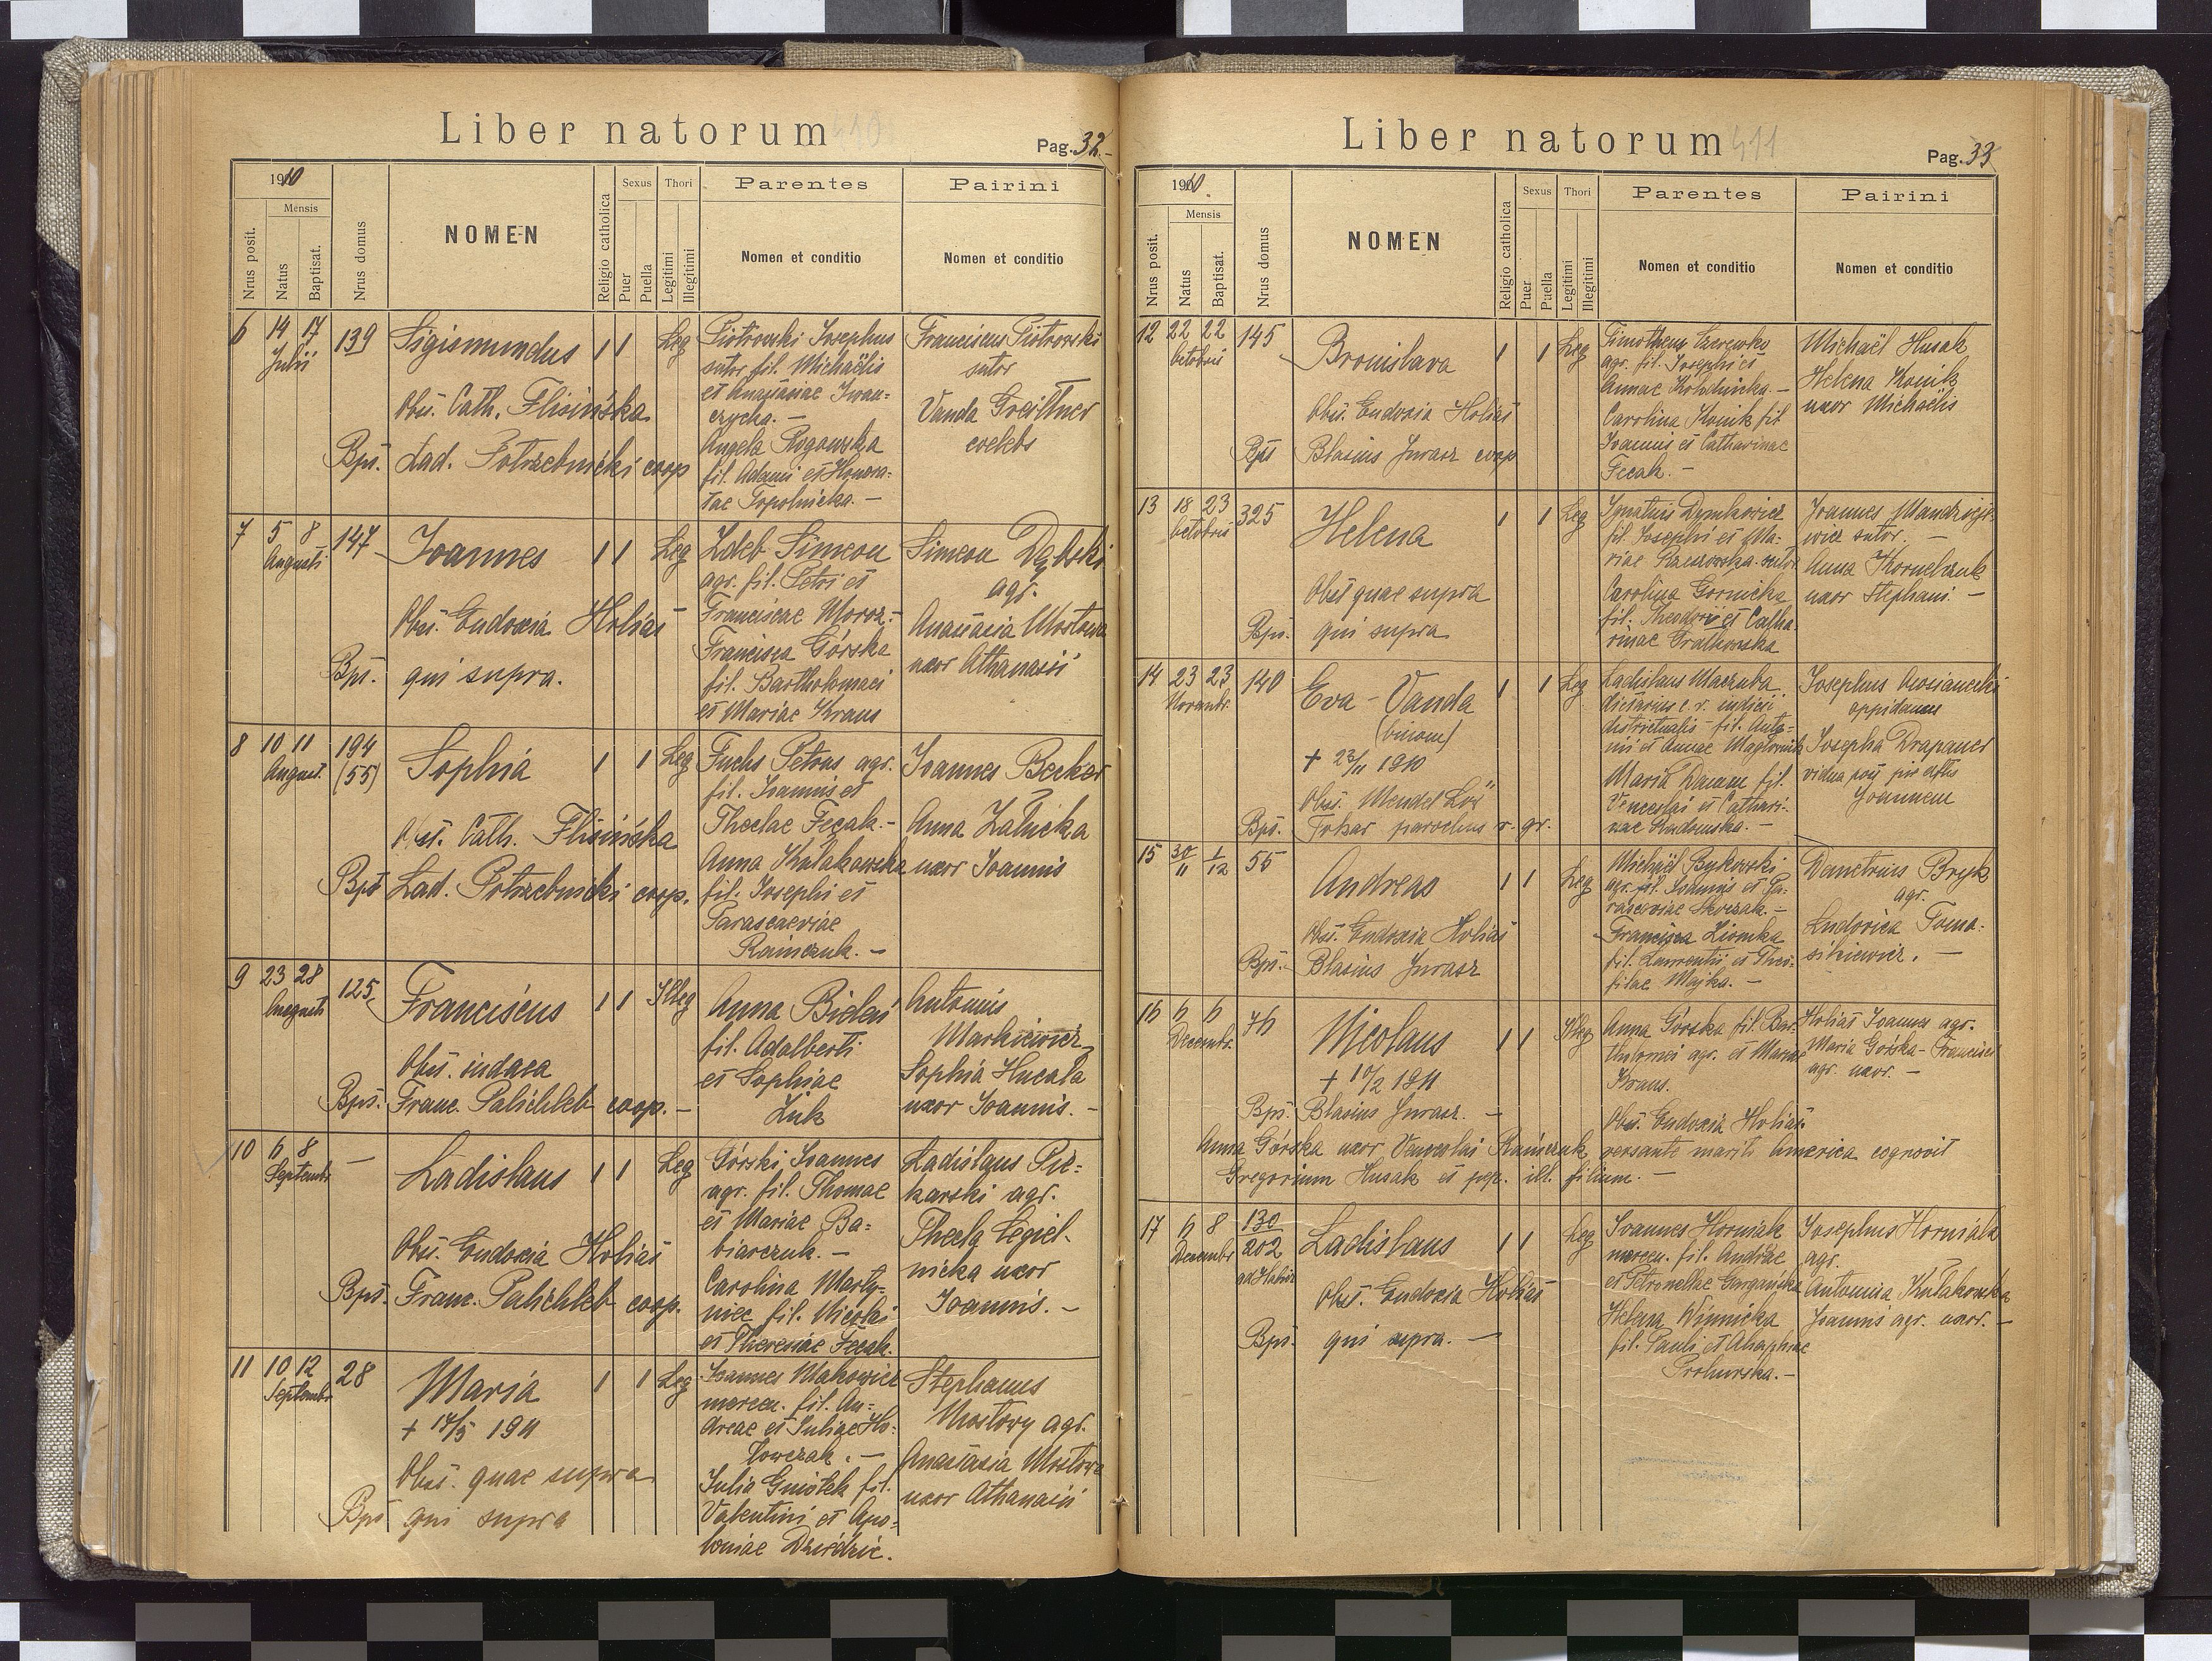 Liber natorum 410
Pag. 32.-
1910
Mensis
Nrus posit.
Natus
Baptisat.
Nrus domus
NOMEN
Religio catholica
Sexus
Puer
Puella
Thori
Legitimi
Illegitimi
Parentes
Nomen et conditio
Pairini
Nomen et conditio
6 14 17 139 Sigismundus 1 1 Leg
Julii
Obst. Cath. Flisińska
Bpt. Lad. Potrzebnicki coop
Piotrowski Josephus
sutor fil. Michaëlis
et Anastasiae Iwan=
czycha.-
Angela Rogowska
fil. Adami et Honora=
tae Topolnicka.-
Franciscus Piotrowski
sutor
Vanda Greittner
coelebs
7 5 8 147 Joannes 1 1 Leg
Augusti
Obst. Eudoxia Holiaś
Bpt. qui supra.
Zdeb Simeon
agr. fil. Petri et
Franciscae Moroz.-
Francisca Górska
fil. Bartholomaei
et Mariae Kraus
Simeon Dębski
agr.
Anastasia Mostowa
uxor Athanasii
8 10 11 194 Sophia 1 1 Leg
August. (55)
Obst. Cath. Flisińska
Bpt Lad. Potrzebnicki coop.
Fuchs Petrus agr.
fil. Joannis et
Theclae Fecak.-
Anna Kułakowska
fil. Josephi et
Parasceviae
Rainczuk.-
Joannes Berker
Anna Załucka
uxor Joannis
9 23 28 125 Franciscus 1 1 Illeg
Augusti
Obst. iudaea
Bpt. Franc. Palichleb coop.-
Anna Bielaś
fil. Adalberti
et Sophiae
Żuk
Antonius
Markiewicz
Sophia Hucała
uxor Joannis.-
10 6 8 - Ladislaus 1 1 Leg
Septembr
Obst. Eudoxia Holiaś
Bpt. Franc. Palichleb coop.
Górski Joannes
agr. fil. Thomae
et Mariae Ba=
biarczuk.-
Carolina Marty=
niec fil. Nicolai
et Theresiae Fecak.
Ladislaus Pie=
karski agr.
Thecla Cegiel.
nicka uxor
Joannis.-
11 10 12 28 Maria 1 1 Leg
Septembr
+ 14/5 1911
Obst. quae supra
Bpt qui supra
Joannes Makowicz
mercen. fil. An=
dreae et Juliae Ho=
lowczak.-
Julia Gniotek fil.
Valentini et Apo=
loniae Dziedzic.
Stephanus
Mostowy agr.
Anastasia Mostowa
uxor Athanasii
Liber natorum 411
Pag. 33
1910.
Mensis
Nrus posit.
Natus
Baptisat.
Nrus domus
NOMEN
Religio catholica
Sexus
Puer
Puella
Thori
Legitimi
Illegitimi
Parentes
Nomen et conditio
Pairini
Nomen et conditio
12 22 22 145 Bronislava 1 1 Leg
Octobris
Obst. Eudoxia Holiaś
Bpt Blasius Jurasz coop
Timotheus
agr. fil. Josephi et
Annae Kołodnicka.-
Carolina Konik fil
Joannis et Catharinae
Fecak.-
Michaël Husak
Helena Konik
uxor Michaëlis
13 18 23 325 Helena 1 1 Leg
Octobris
Obst quae supra
Bpt. qui supra
Ignatius Dymkowicz
fil. Josephi et Ma=
riae Rzeszowska sutor
Carolina Gornicka
fil. Theodori et Catha
rinae Gratkowska
Joannes
wicz sutor.-
Anna Kornelczuk
uxor Stephani.-
14 23 23 140 Eva - Vanda 1 1 Leg
Novembr.
+ 23/11 1910
Obst. Mendel Löw
Bpt. Tokar parochus r. gr.
Ladislaus Maczuba
dietarius c. r. iudicii
districtualis fil. Anto=
nii et Annae
Maria Damm fil.
Venceslai et Cathari=
nae Radomska.-
Josephus
oppidanus
Josepha Drapauer
vidua post
Joannem
15 30/11 1/12 55 Andreas 1 1 Leg
Obst. Eudoxia Holiaś
Bpt. Blasius Jurasz
Michaël Bykowski
agr. fil. Joannis et Pa=
rasceviae Skoczak.-
Francisca Ziomka
fil. Laurentii et Theo=
filae Majka.-
Demetrius Bryk
agr.
Ludovica Toma=
sikiewicz.-
16 6 6 76 Nicolaus 1 1 Illeg
Decembr.
+ 10/2 1911
Bpt. Blasius Jurasz.-
Anna Górska fil. Bar=
tholomei agr. et Mariae
Kraus.
Obst. Eudoxia Holiaś
Holiaś Joannes agr.
Maria Górska - Francisci
agr. uxor.-
Anna Górska uxor Venceslai Rainczuk versante mariti America cognovit
Gregorium Husak et pep. ill. filium.-
17 6 8 130/202 Ladislaus 1 1 Leg
Decembr
Obst. Eudoxia Holiaś
Bpt. qui supra.-
Joannes Horniak
mercen. fil. Andreae
et Petronellae Gurgańska
Helena Winnicka
fil. Pauli et Ahaphiae
Prohurska.-
Josephus Horniak
agr.
Antonina Kułakowska
Joannis agr. uxor.-